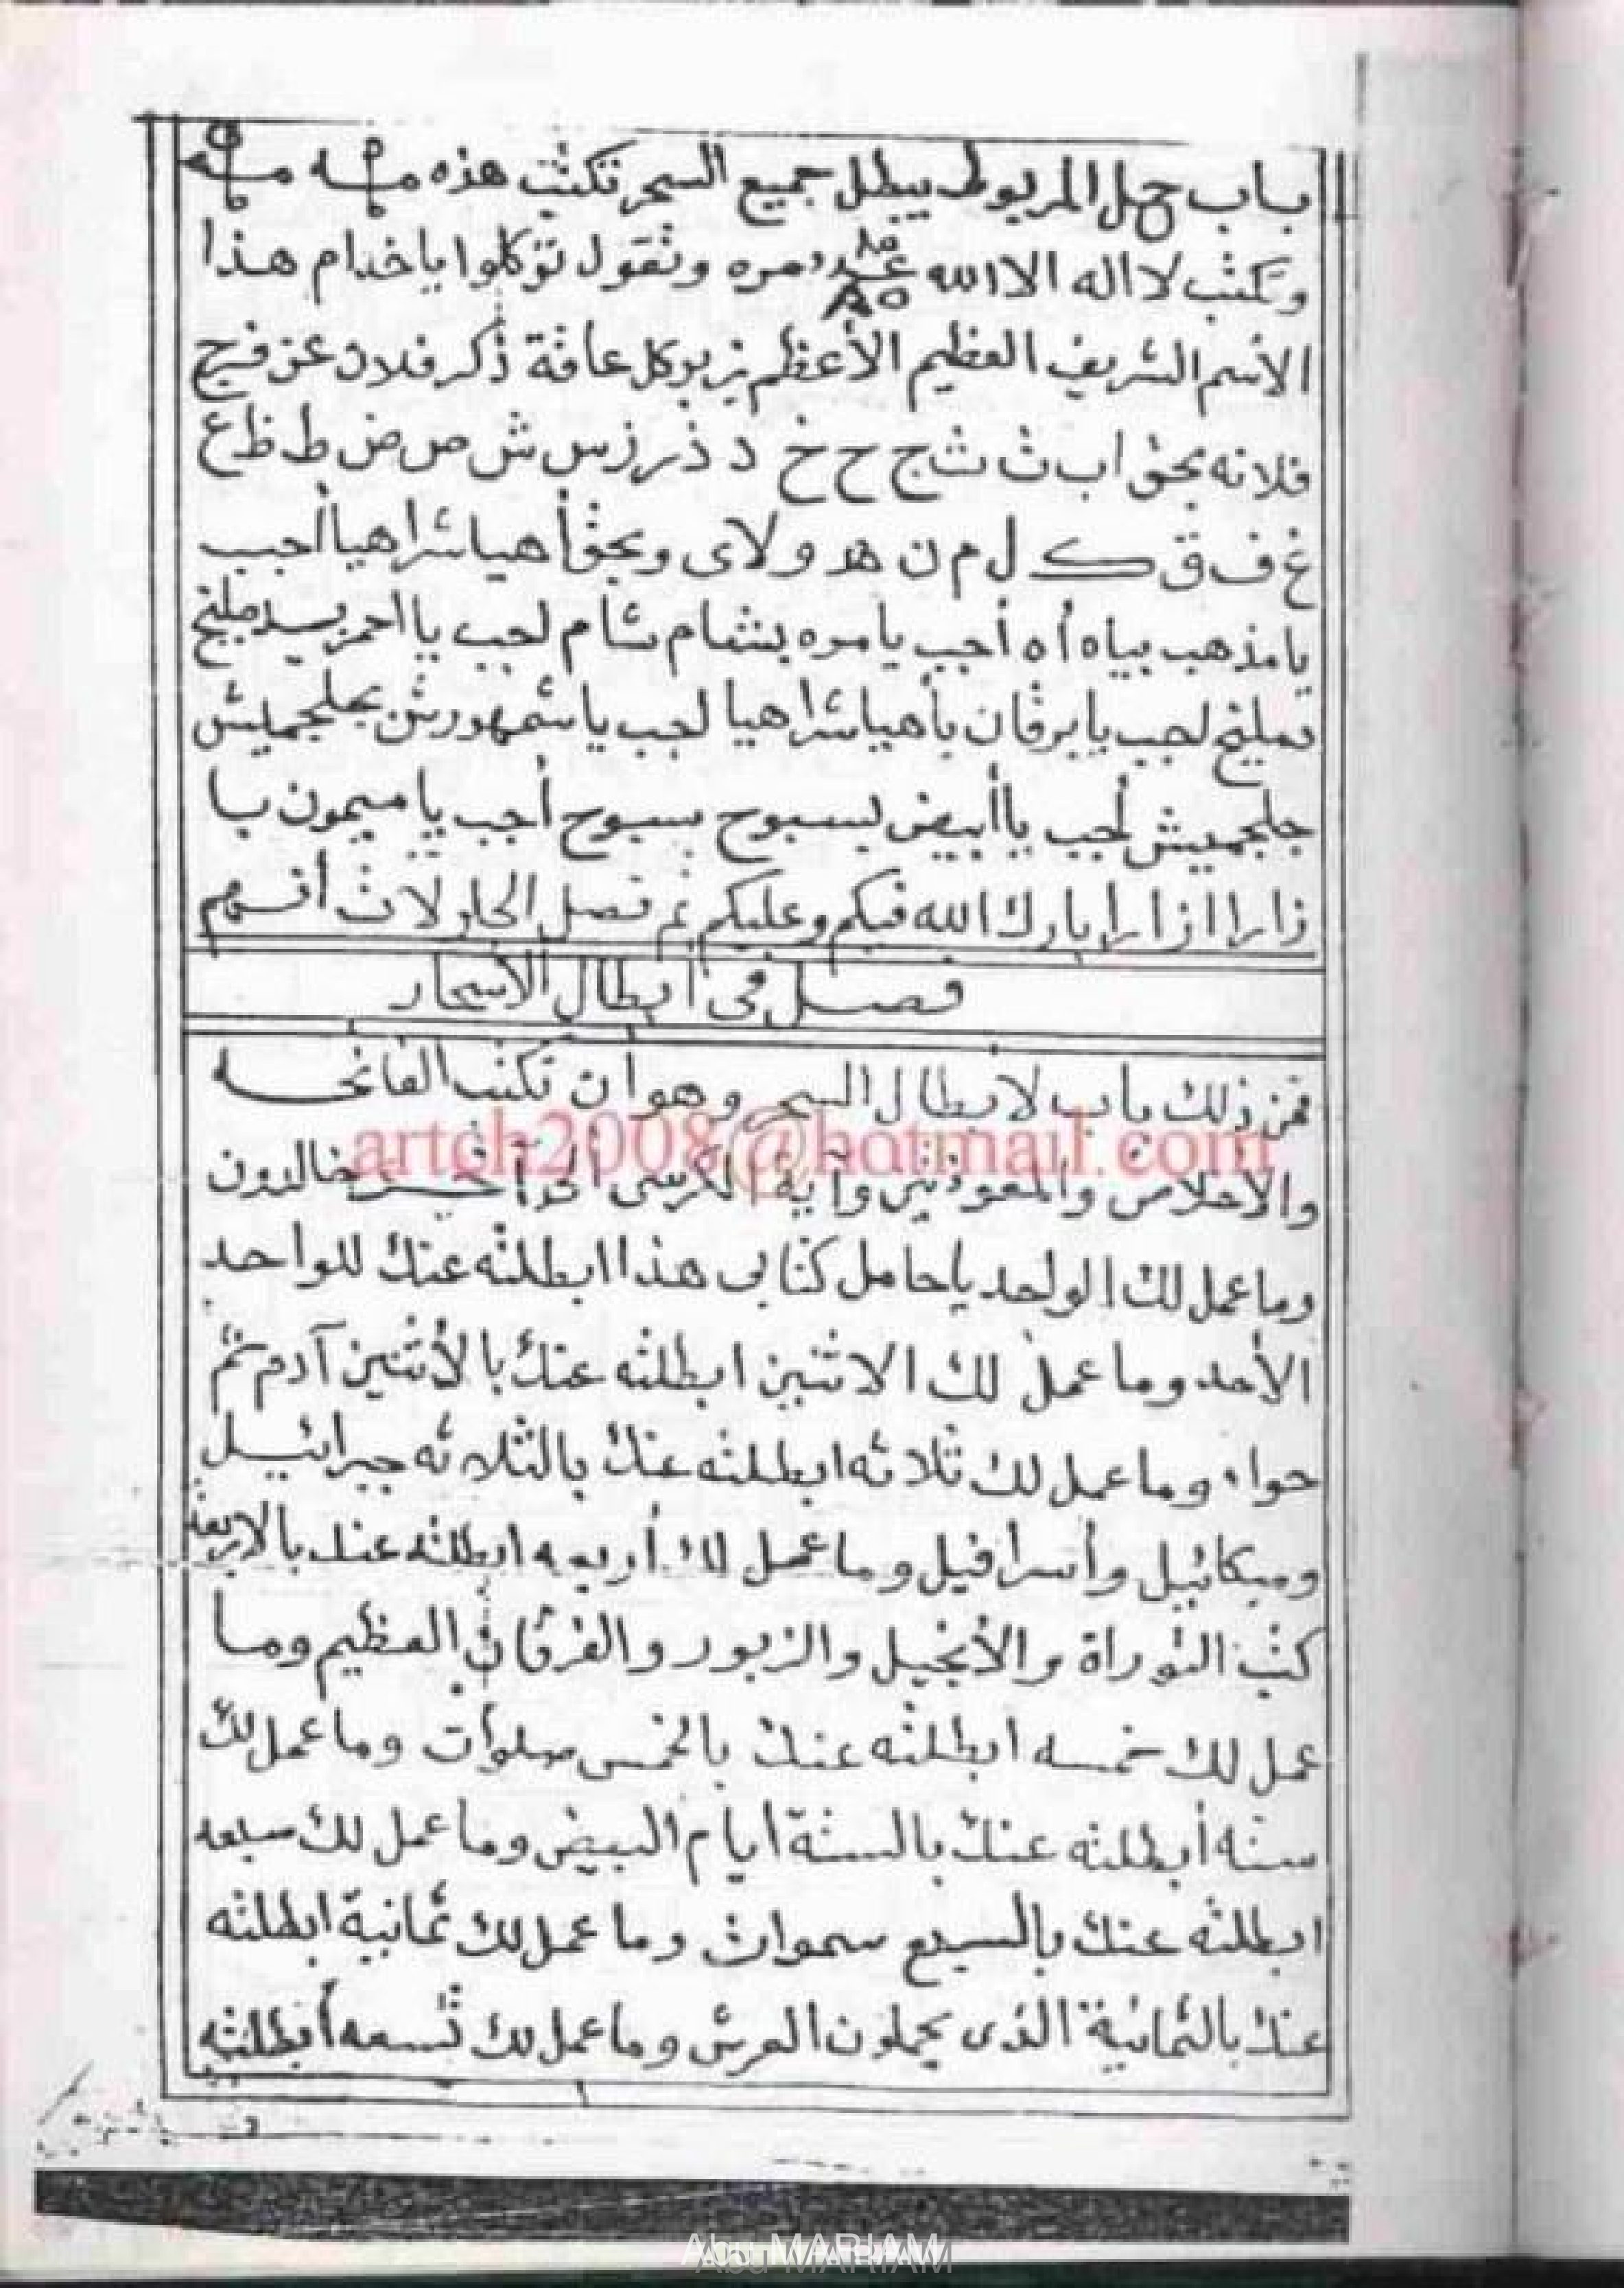 باب حل المربوط يبطل جميع السحر تكتب هذه
وتكتب لا اله الا الله مره وتقول توكلوا يا خدام هذا
الأسم الشريف العظيم الأعظم بوكل عاقة ذكر فلان عن فرج
فلانه بحق ا ب ت ث ج ح خ د ذ ر ز س ش ص ض ط ظ ع
غ ف ق ك ل م ن ه و لا ى وبحق أهيا شراهيا أجب
يا مذهب بياه أه أجب يا مره بشام شام اجب يا احمر
تمليخ اجب يا برقان بأهيا شراهيا اجب يا شمهورش بجلجميش
جلجميش أجب يا أبيض بسبوح سبوح أجب يا ميمون يا
زارا ازارا بارك الله فيكم وعليكم تم فصل الحلولات
فصل فى ابطال الأسحار
فمن ذلك باب لابطال السحر وهو ان تكتب الفاتحه
artch2008@hotmail.com
والأخلاص والمعوذتين وآية الكرسى الى آخر خالدون
وما عمل لك الواحد يا حامل كتابى هذا ابطلته عنك للواحد
الأحد وما عمل لك الاثنين ابطلته عنك بالأثنين آدم ثم
حواء وما عمل لك ثلاثه ابطلته عنك بالثلاثه جبرائيل
وميكائيل وأسرافيل وما عمل لك أربعه ابطلته عنك بالاربعة
كتب التوراة والأنجيل والزبور والفرقان العظيم وما
عمل لك خمسه ابطلته عنك بالخمس صلوات وما عمل لك
سته أبطلته عنك بالستة ايام البيض وما عمل لك سبعه
ابطلته عنك بالسبع سموات وما عمل لك ثمانية ابطلته
عنك بالثمانية الذى يحملون العرش وما عمل لك تسعه أبطلته
Abu MARIAM